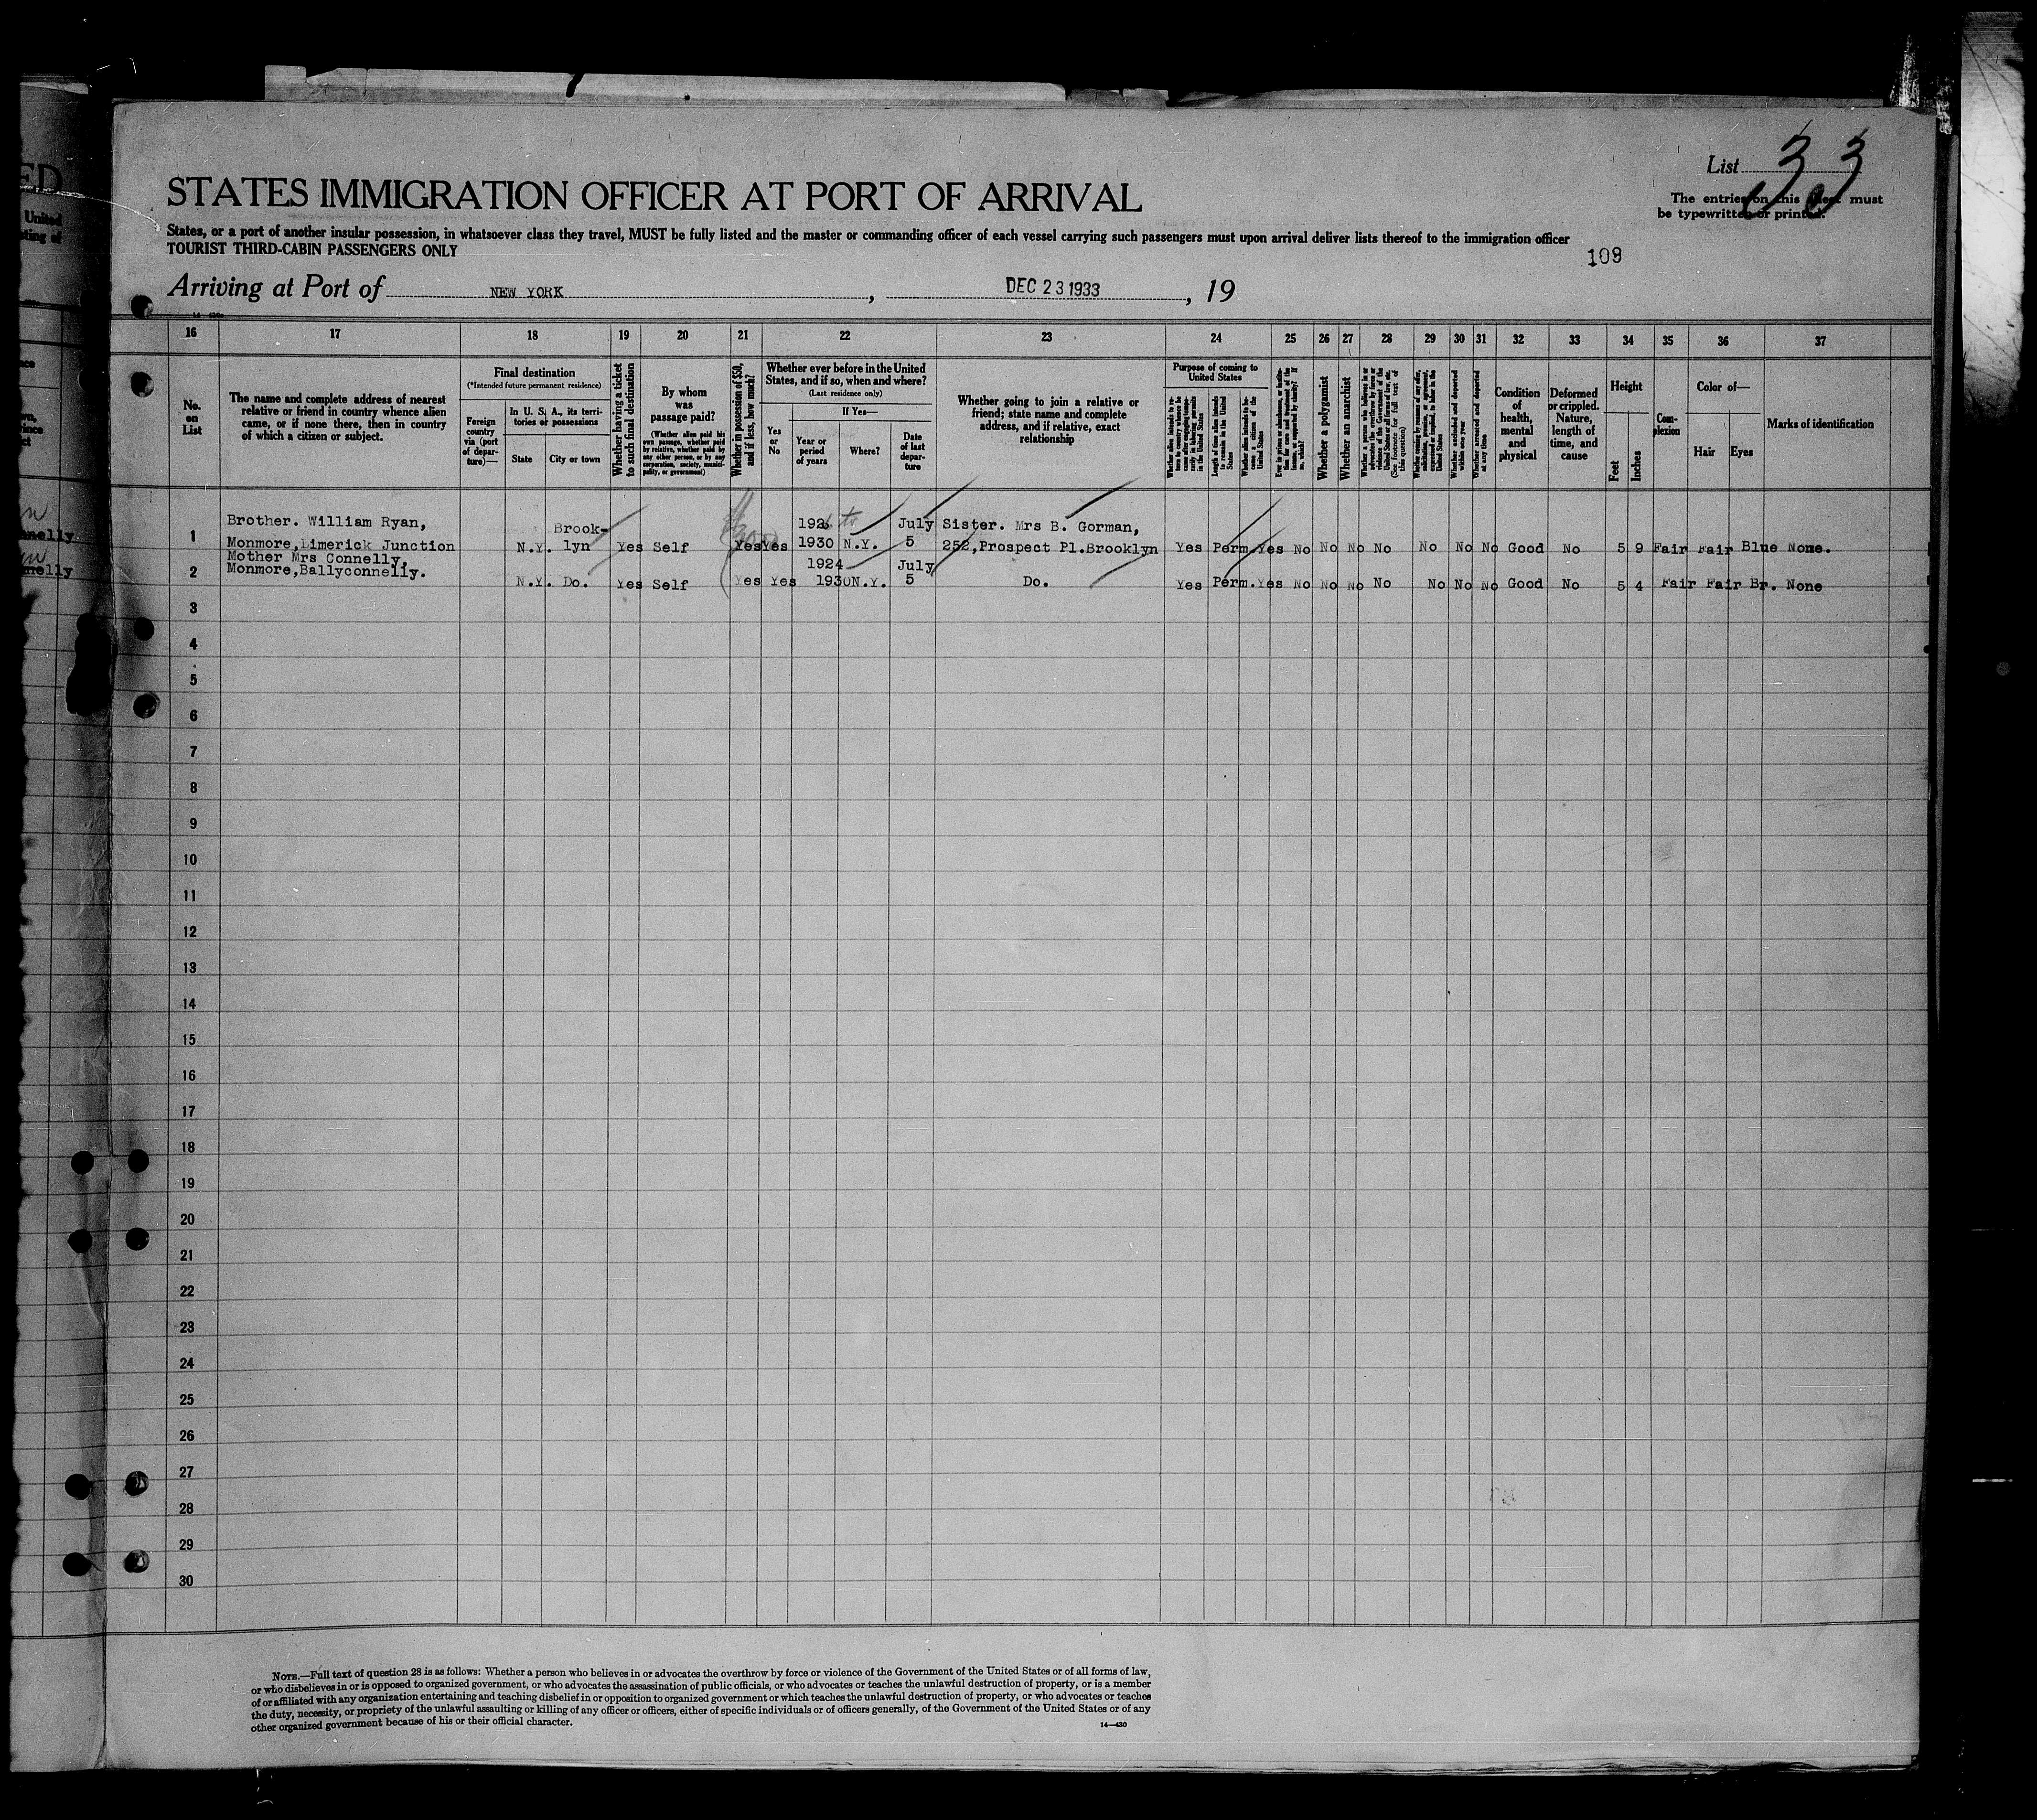 ED
United
List 33
STATES IMMIGRATION OFFICER AT PORT OF ARRIVAL
The entries on this sheet must
be typewritten or printed.
States, or a port of another insular possession, in whatsoever class they travel, MUST be fully listed and the master or commanding officer of each vessel carrying such passengers must upon arrival deliver lists thereof to the immigration officer
TOURIST THIRD-CABIN PASSENGERS ONLY
109
Arriving at Port of NEW YORK, DEC 23 1933, 19
16 17 18 19 20 21 22 23 24 25 26 27 28 29 30 31 32 33 34 35 36 37
No. on List
The name and complete address of nearest
relative or friend in country whence alien
came, or if none there, then in country
of which a citizen or subject.
Final destination
(*Intended future permanent residence)
Foreign country via (port of departure)—
In U. S. A., its territories or possessions
State
City or town
Whether having a ticket to such final destination
By whom was passage paid?
(Whether alien paid his own passage, whether paid by relative, whether paid by any other person, or by any corporation, society, municipality, or government)
Whether in possession of $50, and if less, how much?
Whether ever before in the United
States, and if so, when and where?
(Last residence only)
Yes or No
If Yes—
Year or period of years
Where?
Date of last departure
Whether going to join a relative or
friend; state name and complete
address, and if relative, exact
relationship
Purpose of coming to United States
Whether alien intends to return to country whence he came after engaging temporarily in laboring pursuits in the United States
Length of time alien intends to remain in the United States
Whether alien intends to become a citizen of the United States
Ever in prison or almshouse, or institution for care and treatment of the insane, or supported by charity? If so, which?
Whether a polygamist
Whether an anarchist
(See footnote for full text of this question)
Whether excluded and deported within one year
Whether arrested and deported at any time
Condition of health, mental and physical
Deformed or crippled. Nature, length of time, and cause
Height
Feet
Inches
Complexion
Color of—
Hair
Eyes
Marks of identification
1 Brother. William Ryan,
Monmore,Limerick Junction N.Y. Brook-lyn Yes Self Yes Yes 1926 to 1930 N.Y. July 5 Sister. Mrs B. Gorman,
252,Prospect Pl.Brooklyn Yes Perm. Yes No No No No No No No Good No 5 9 Fair Fair Blue None.
2 Mother Mrs Connelly,
Monmore,Ballyconnelly. N.Y. Do. Yes Self Yes Yes 1924 1930 N.Y. July 5 Do. Yes Perm. Yes No No No No No No No Good No 5 4 Fair Fair Br. None
3
4
5
6
7
8
9
10
11
12
13
14
15
16
17
18
19
20
21
22
23
24
25
26
27
28
29
30
NOTE.—Full text of question 28 is as follows: Whether a person who believes in or advocates the overthrow by force or violence of the Government of the United States or of all forms of law,
or who disbelieves in or is opposed to organized government, or who advocates the assassination of public officials, or who advocates or teaches the unlawful destruction of property, or is a member
of or affiliated with any organization entertaining and teaching disbelief in or opposition to organized government or which teaches the unlawful destruction of property, or who advocates or teaches
the duty, necessity, or propriety of the unlawful assaulting or killing of any officer or officers, either of specific individuals or of officers generally, of the Government of the United States or of any
other organized government because of his or their official character.
14—430